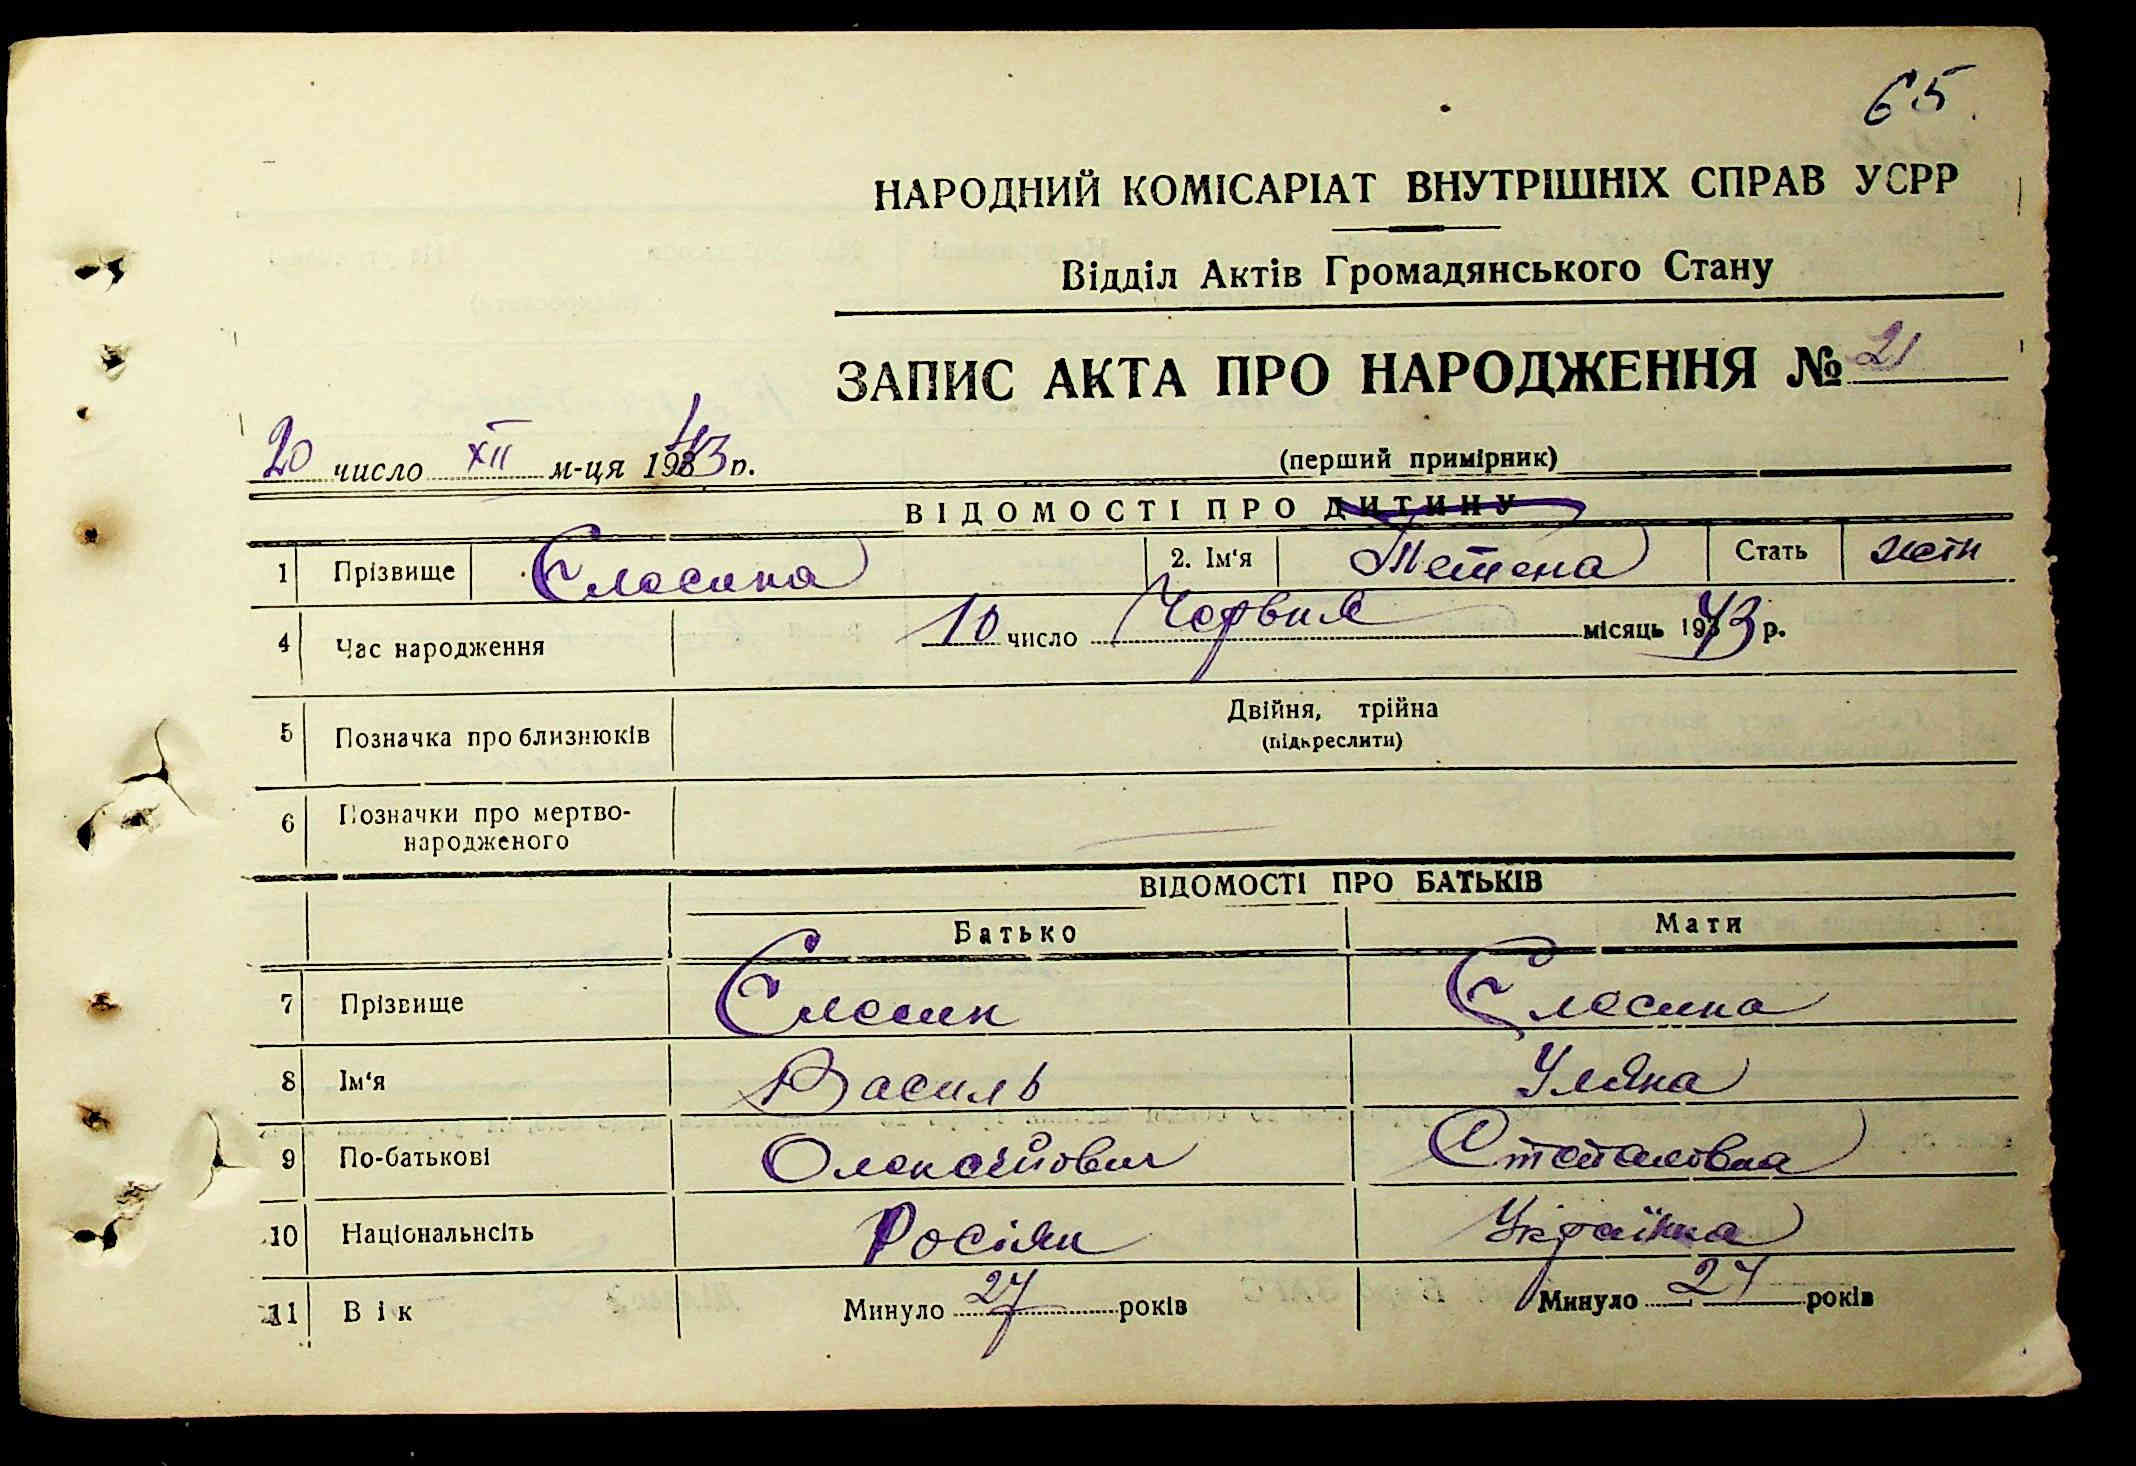 65
НАРОДНИЙ КОМІСАРІАТ ВНУТРІШНІХ СПРАВ УСРР
Відділ Актів Громадянського Стану
ЗАПИС АКТА ПРО НАРОДЖЕННЯ № 21
20 число XII м-ця 1943 р.
(перший примірник)
ВІДОМОСТІ ПРО ДИТИНУ
1 Прізвище Єлесина 2. Ім'я Тетена Стать жін
4 Час народження 10 число Червня місяць 1943 р.
5 Позначка про близнюків Двійня, трійна
(підкреслити)
6 Позначки про мертво-
народженого
ВІДОМОСТІ ПРО БАТЬКІВ
Батько Мати
7 Прізвище Єлесин Єлесина
8 Ім'я Василь Уляна
9 По-батькові Олексійович
10 Національнсіть Росіян Українка
11 Вік Минуло 27 років Минуло 27 років